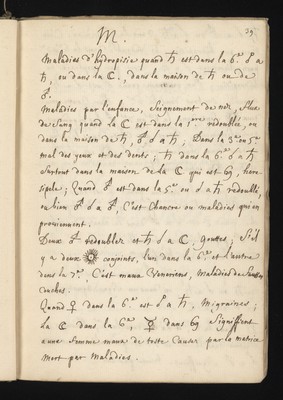 39.
M.
Maladies d'hydropisie quand ♄ est dans la 6.e ☍ a
♄, ou dans la ☾., dans la maison de ♄ ou de
Maladies par l'enfance, Seignement de nez, flux
de Sang quand la ☾ est dans la 1.ere redoublé, ou
dans la maison de ♄, ☍ a ♄; Dans la 3.e ou 5.e
mal des yeux et des dents; ♄ dans la 6.e ☍ a ♄
Surtout dans la maison de la ☾ qui est 69, here
sipele; Quand est dans la 5.e ou ☍ a ♄ redoublé,
ou bien C'est Chancre ou maladies qui en
proviennent.
Deux redoublez et ♄ ☍ a ☾, gouttes; S'il
y a deux conjoints, l'un dans la 6.e et l'autre
dans la 7.e, C'est maux Veneriens, Maladies de
couches.
Quand ♀ dans la 6.e est ☍ a ♄, Migraines;
La ☾ dans la 6.e, dans 69 Signiffient
a une femme maux de teste Causez par la matrice
Mort par maladies.